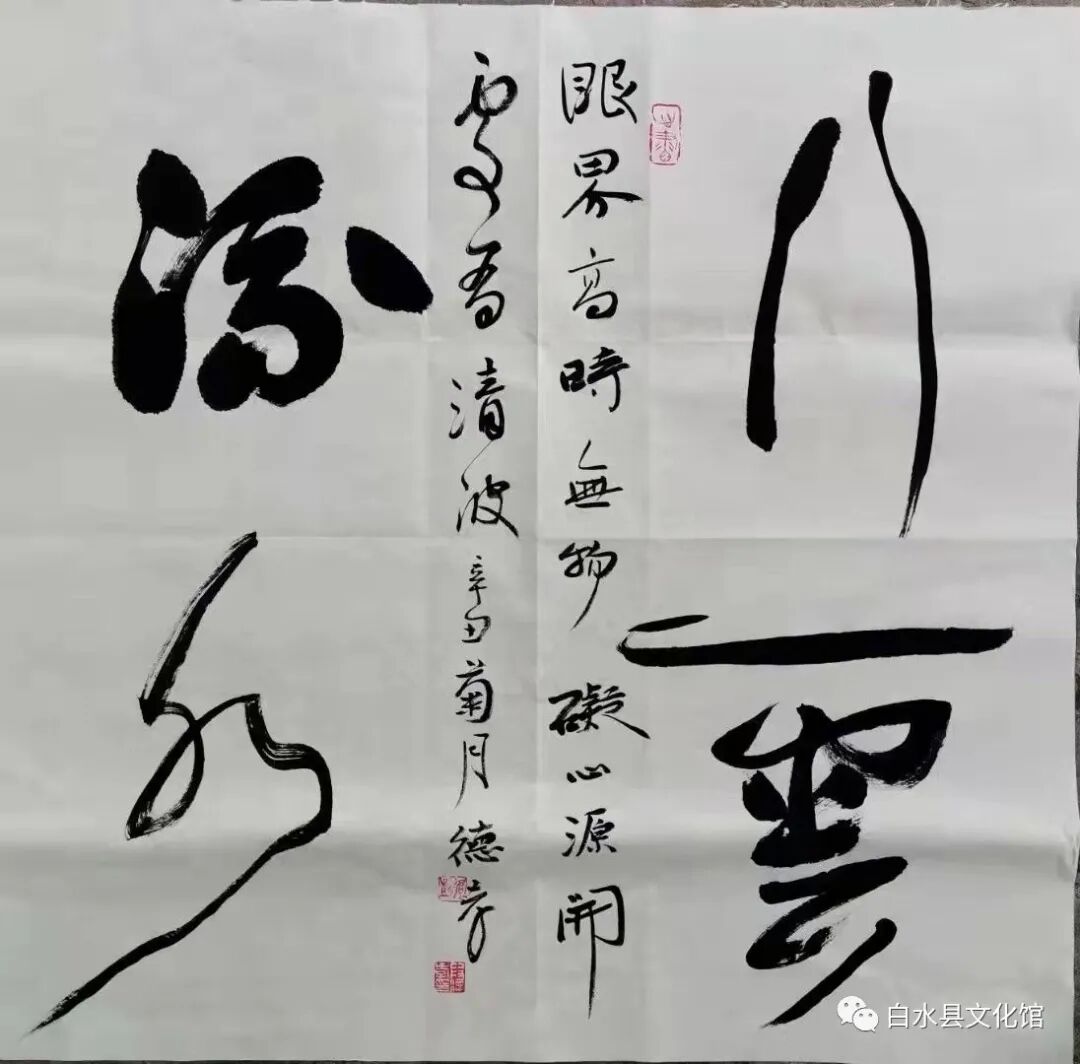 行雲
眼界高時無物礙心源開
處有清波辛丑菊月德孝
流水
白水县文化馆